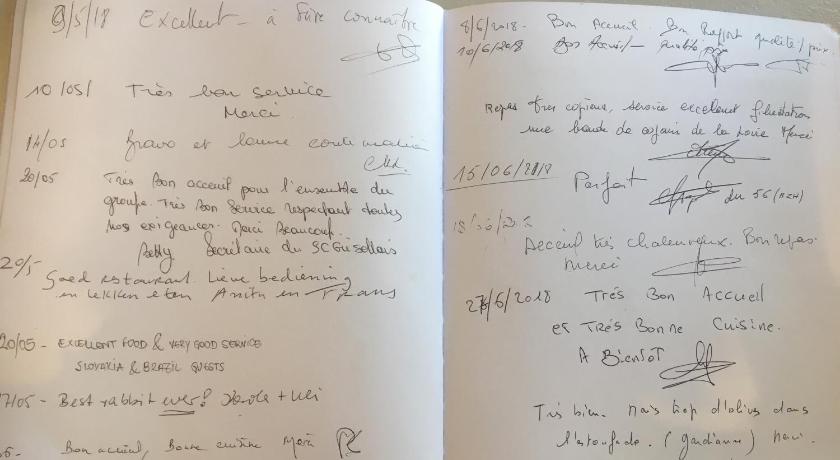 9/5/18 Excellent - à faire connaître
10/05/ Très bon service
Merci
14/05 Bravo et bonne continuation
20/05 Très Bon acceuil pour l'ensemble du
groupe. Très Bon Service respectant toutes
nos exigeances. Merci Beaucoup.
Betty Secrétaire du SC
20/5 Goed restaurant. Lieve bediening
en lekker eten Anita en Frans
20/05 - EXCELLENT FOOD & VERY GOOD SERVICE
SLOVAKIA & BRAZIL GUESTS
7/05 - Best rabbit ever!
Bon acceuil, Bonne cuisine Merci
8/6/2018. Bon Accueil. Bon Rapport qualité/prix
10/6/2018 Bon Accueil - qualité prix
Repas très copieux, service excellent félicitation
une bande de copain de la Loire Merci
15/06/2018
Parfait du 56 (BZH)
Acceuil très chaleureux. Bon repas.
Merci
27/6/2018 Très Bon Accueil
et Très Bonne Cuisine.
A Bientôt
Très bien. Mais trop d'olives dans
l'estouffade. (gardianne) Merci.